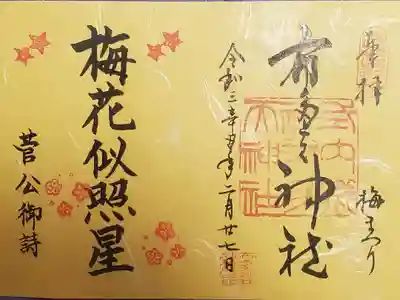 奉拝
梅まつり
布多天神社
令和三辛丑年二月廿七日
梅花似照星
菅公御詩